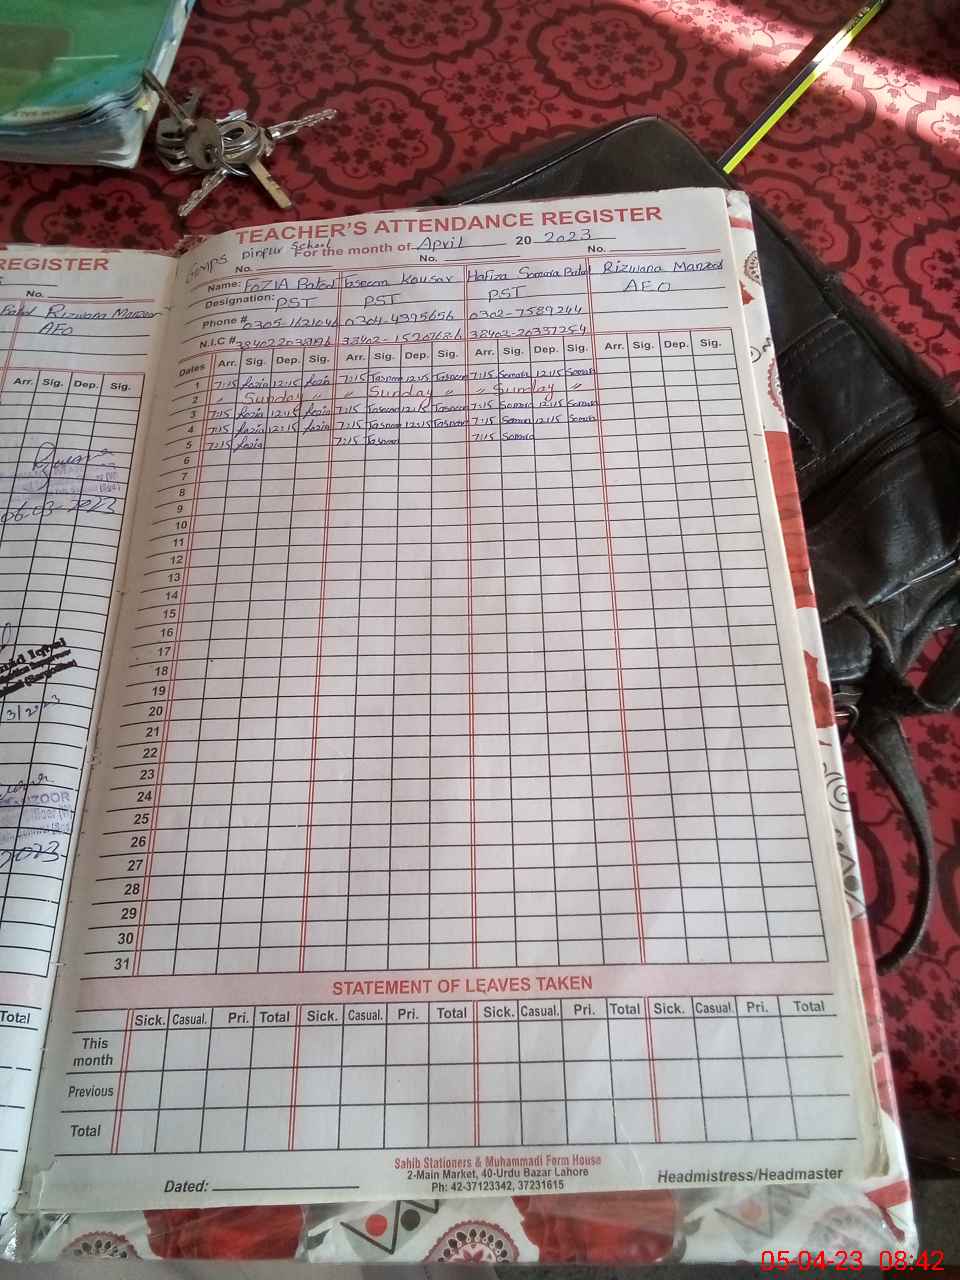 REGISTER
No.
Rizwana Manzoor
AEO
Arr. Sig. Dep. Sig.
06-03-2023
3/2023
2023
Total
TEACHER'S ATTENDANCE REGISTER
GEMPS pinpur School For the month of April 20 2023
No. No. No.
Name: FOZIA Batool Taseem Kousar Hafiza Somara Batool Rizwana Manzoor
Designation: PST PST PST AEO
Phone # 0304-4995656 0302-7589244
N.I.C # 38402-20337254
Dates Arr. Sig. Dep. Sig. Arr. Sig. Dep. Sig. Arr. Sig. Dep. Sig. Arr. Sig. Dep. Sig.
1 7:15 fozia 12:15 fozia 7:15 Taseem 12:15 Taseem 7:15 Somara 12:15 Somara
2 " Sunday " " Sunday " " Sunday "
3 7:15 fozia 12:15 fozia 7:15 Taseem 12:15 Taseem 7:15 Somara 12:15 Somara
4 7:15 fozia 12:15 fozia 7:15 Taseem 12:15 Taseem 7:15 Somara 12:15 Somara
5 7:15 fozia 7:15 Taseem 7:15 Somara
6
7
8
9
10
11
12
13
14
15
16
17
18
19
20
21
22
23
24
25
26
27
28
29
30
31
STATEMENT OF LEAVES TAKEN
Sick. Casual. Pri. Total Sick. Casual. Pri. Total Sick. Casual. Pri. Total Sick. Casual. Pri. Total
This month
Previous
Total
Sahib Stationers & Muhammadi Form House
2-Main Market, 40-Urdu Bazar Lahore
Ph: 42-37123342, 37231615
Dated: Headmistress/Headmaster
05-04-23 08:42